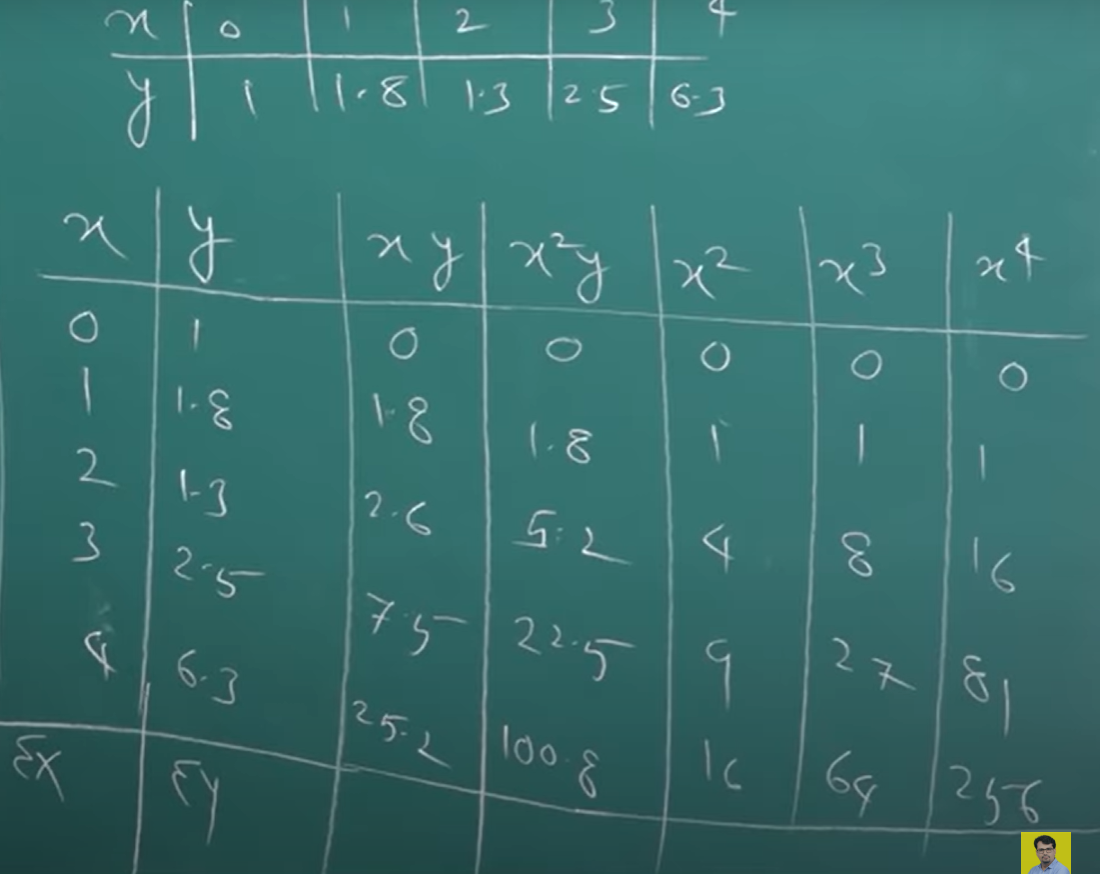 x 0 1 2 3 4
y 1 1.8 1.3 2.5 6.3
x y xy x²y x² x³ x⁴
0 1 0 0 0 0 0
1 1.8 1.8 1.8 1 1 1
2 1.3 2.6 5.2 4 8 16
3 2.5 7.5 22.5 9 27 81
4 6.3 25.2 100.8 16 64 256
Σx Σy